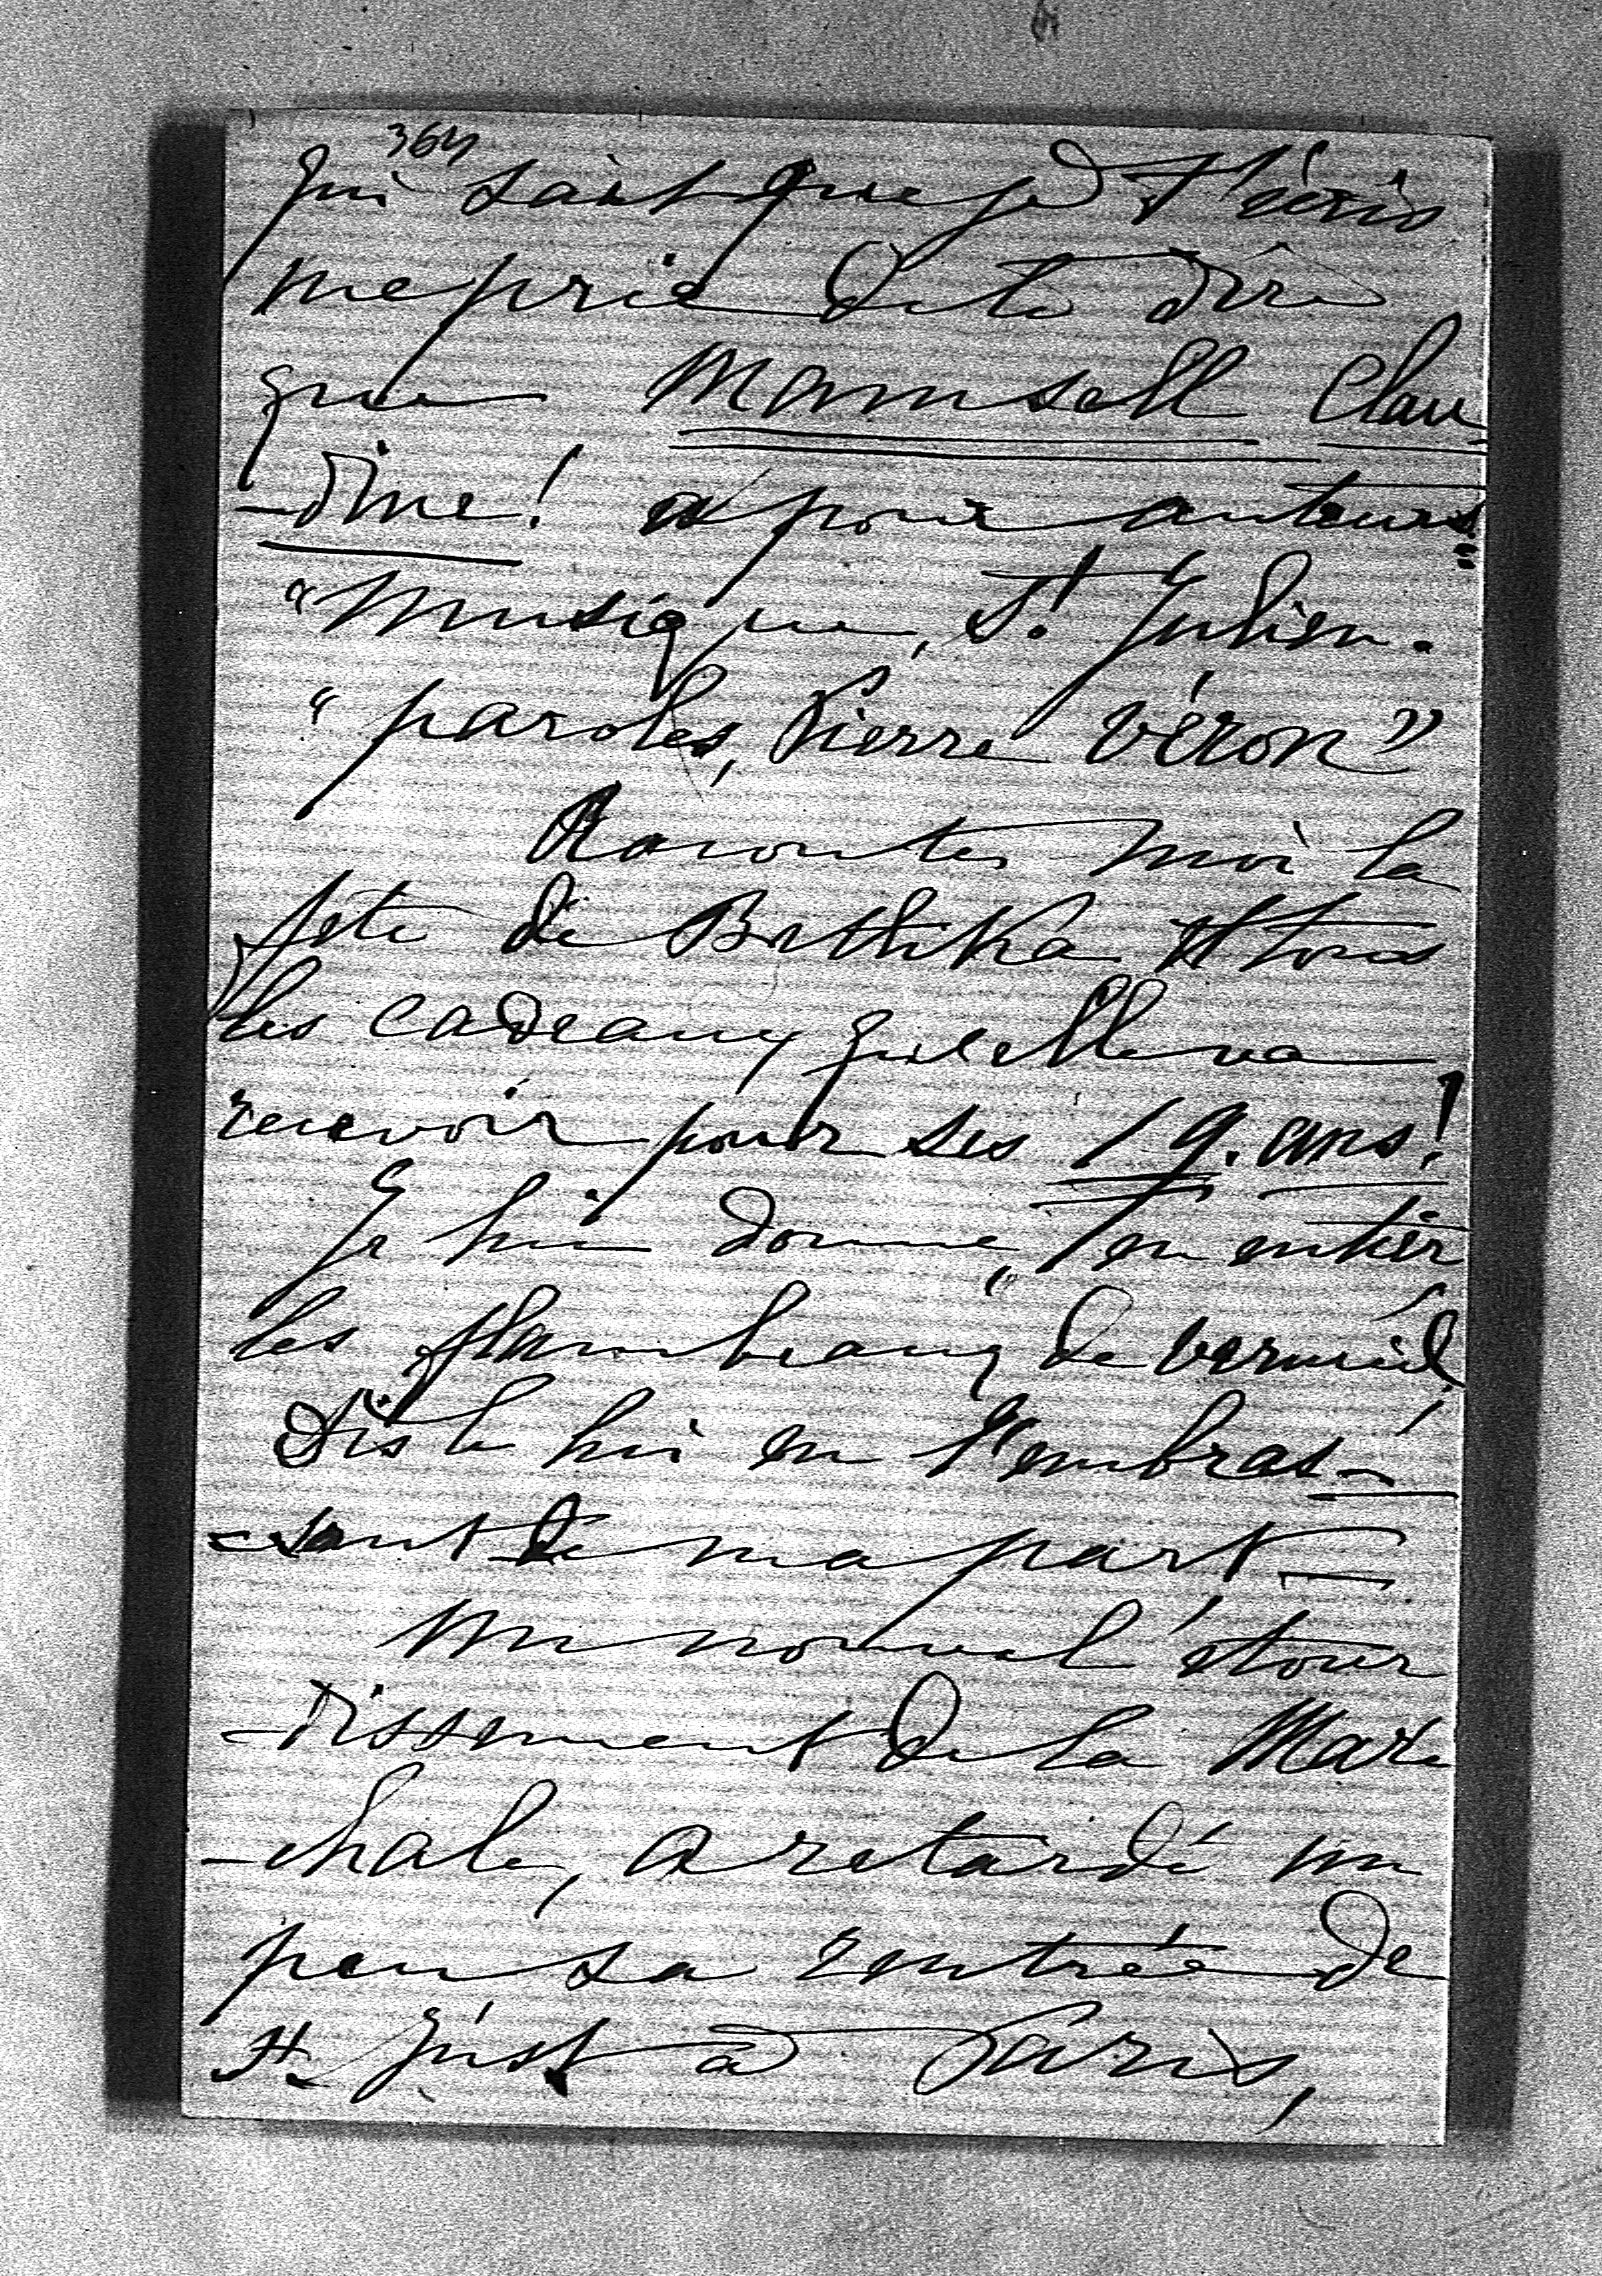 364
qui sait que je t'écris
me prie de te dire
que Mamsell Clau
-dine! a pour auteurs:
"Musique, St. Julien.
"paroles, Pierre Véron"
Racontes moi la
fête de Bethka et tous
les cadeaux qu'elle va
recevoir pour ses 19. ans!
Je lui donne, en entier
les flambeaux de vermeil,
Dis le lui en l'embras-
-sant de ma part—
Un nouvel étour
-dissement de la Maré
-chale, a retardé un
peu sa rentrée de
St. Just à Paris,